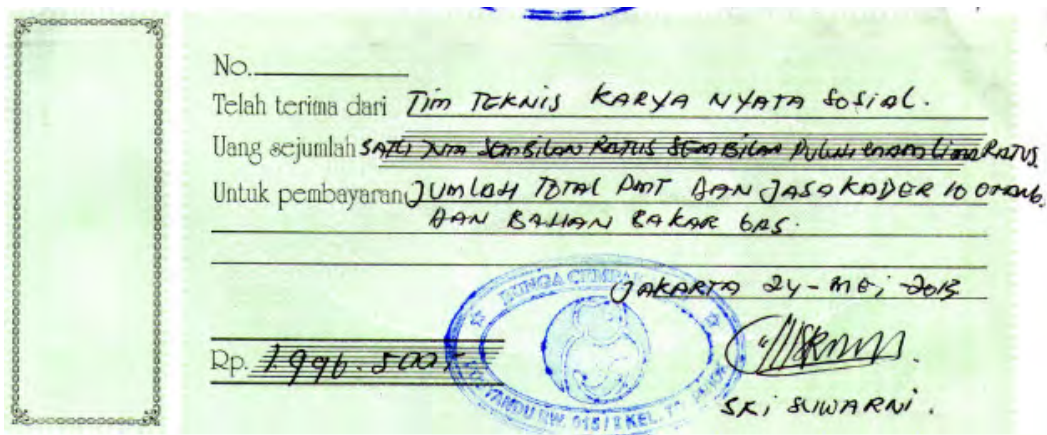 No.
Telah terima dari Tim TEKNIS KARYA NYATA SOSIAL.
Uang sejumlah SATU JUTA SEMBILAN RATUS SEMBILAN PULUH ENAM LIMA RATUS
Untuk pembayaran JUMLAH TOTAL PMT DAN JASA KADER 10 ORANG.
DAN BAHAN BAKAR GAS.
JAKARTA 24 - MEI 2013
BUNGA CEMPAKA
Rp. 1.996.500,-
RW. 015 / KEL.
SRI SUWARNI.